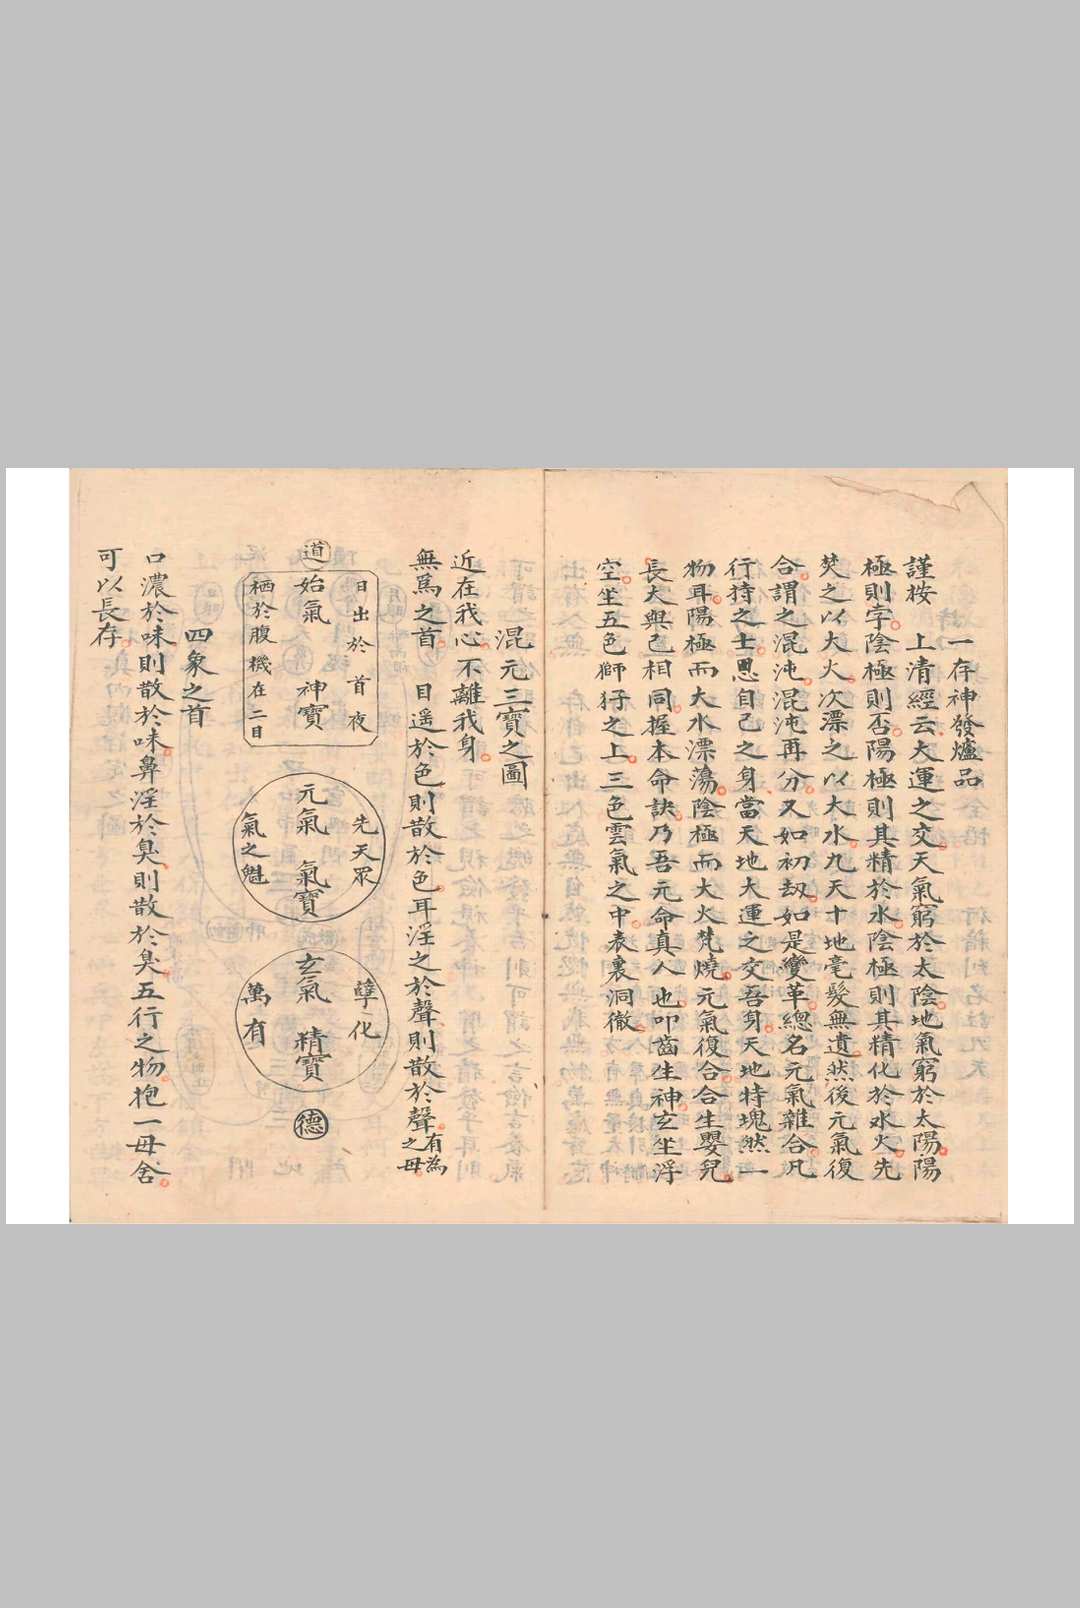 一存神發爐品
謹按　上清經云大運之交天氣窮於太陰地氣窮於太陽陽
極則孛陰極則否陽極則其精於水陰極則其精化於水火先
焚之以大火次漂之以大水九天十地毫髮無遺然後元氣復
合謂之混沌混沌再分又如初刼如是變革總名元氣雜合凡
行持之士思自己之身當天地大運之交吾身天地特塊然一
物耳陽極而大水漂蕩陰極而大火焚燒元氣復合合生嬰兒
長大與己相同握本命訣乃吾元命真人也叩齒生神玄坐浮
空坐五色獅子之上三色雲氣之中表裏洞徹
混元三寶之圖
近在我心不離我身
無爲之首　目遥於色則散於色耳淫之於聲則散於聲有為之母
道
日出於首夜
始氣　神寶
栖於腹機在二目
先天眾
元氣　氣寶
氣之魁
孽化
玄氣　精寶
萬有
德
四象之首
口濃於味則散於味鼻淫於臭則散於臭五行之物抱一毋舍
可以長存